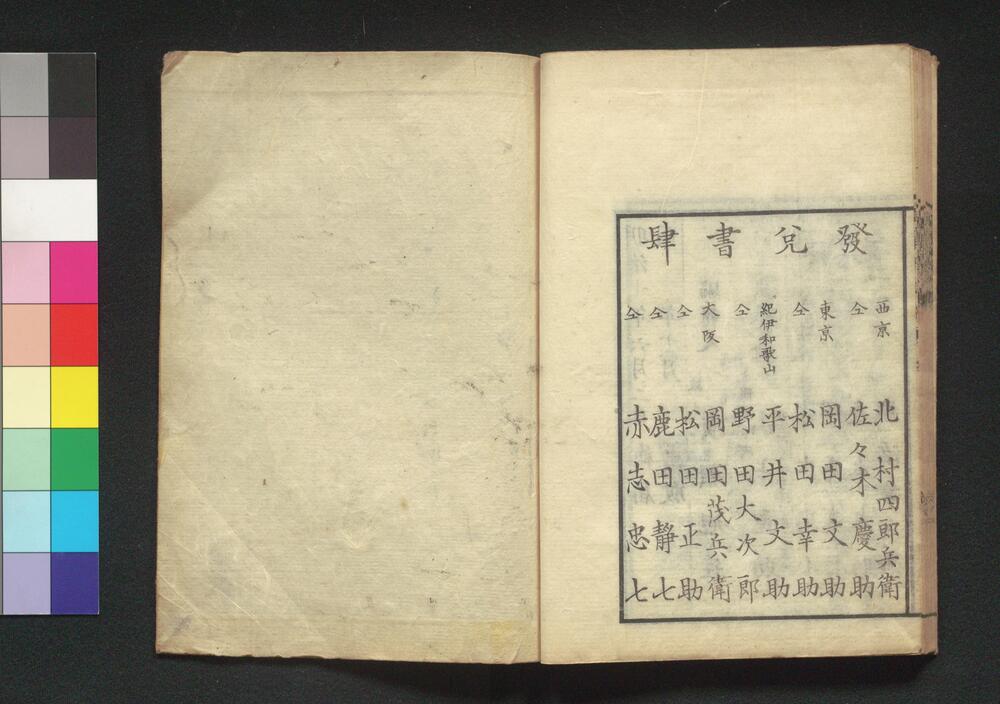 發兌書肆
西京 北村四郎兵衛
仝 佐々木慶助
東京 岡田文助
仝 松田幸助
紀伊和歌山 平井文助
仝 野田大次郎
大阪 岡田茂兵衛
仝 松田正助
仝 鹿田静七
仝 赤志忠七